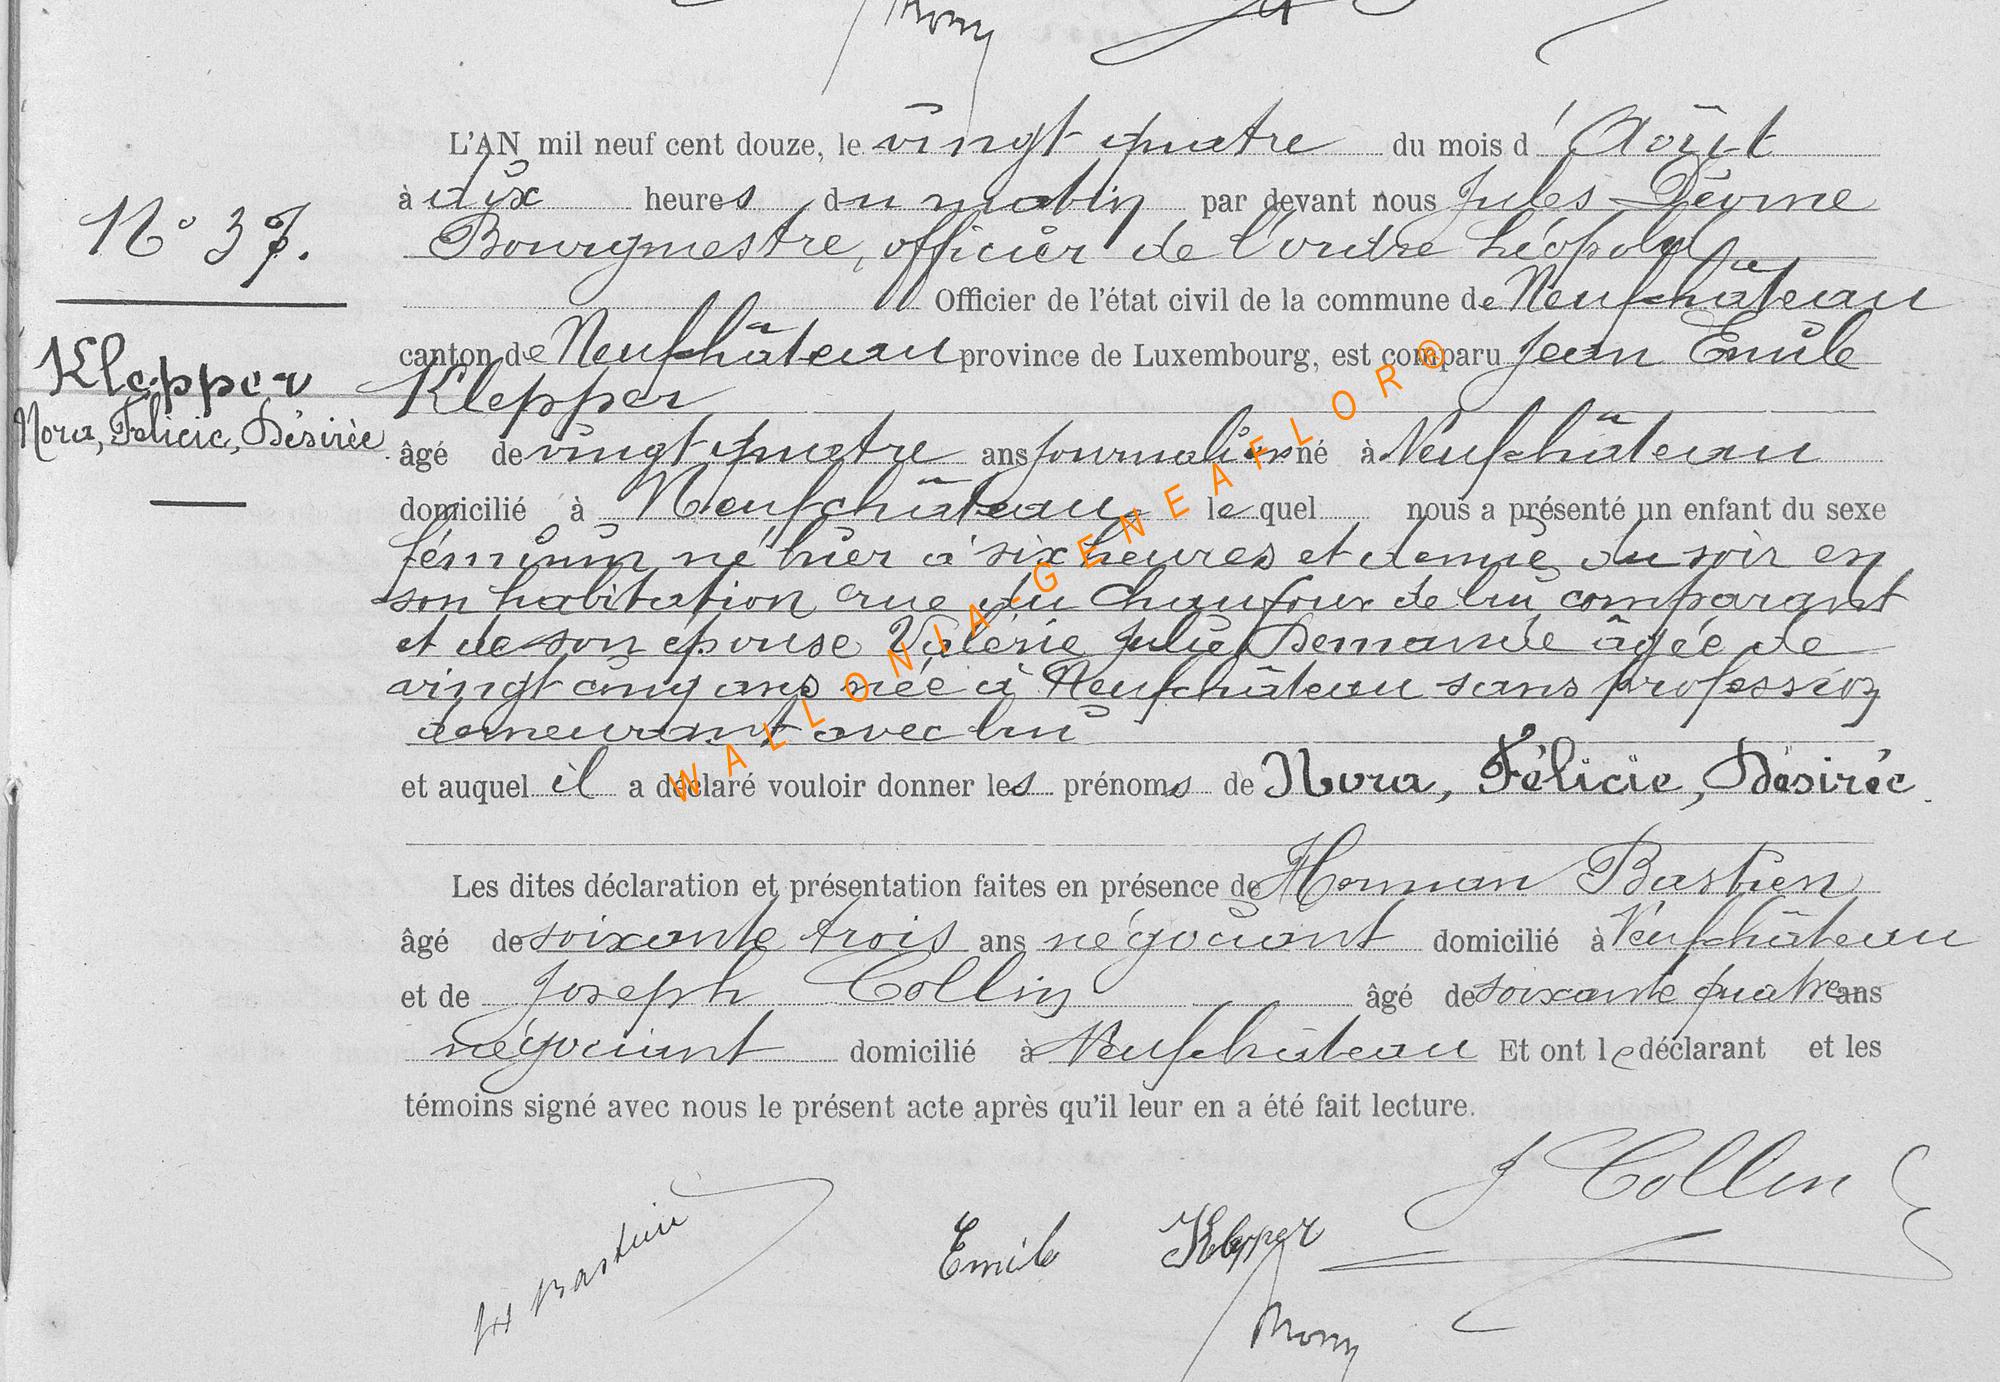 L'AN mil neuf cent douze, le vingt quatre du mois d'Août
à dix heures du matin par devant nous Jules
Bourgmestre, officier de l'ordre Léopold
Officier de l'état civil de la commune de Neufchâteau
canton de Neufchâteau province de Luxembourg, est comparu Jean Emile
Klepper
âgé de vingt quatre ans journalier né à Neufchâteau
domicilié à Neufchâteau lequel nous a présenté un enfant du sexe
féminin né hier à six heures et demie du soir en
son habitation rue du Chaufour de lui comparant
et de son épouse Valérie Julie Demande âgée de
vingt cinq ans née à Neufchâteau sans profession
demeurant avec lui
et auquel il a déclaré vouloir donner les prénoms de Nora, Félicie, Désirée
Les dites déclaration et présentation faites en présence de Herman Bastien
âgé de soixante trois ans négociant domicilié à Neufchâteau
et de Joseph Collin âgé de soixante quatre ans
négociant domicilié à Neufchâteau Et ont le déclarant et les
témoins signé avec nous le présent acte après qu'il leur en a été fait lecture.
N° 37.
Klepper
Nora, Félicie, Désirée
J Collin
Bastien
Emile Klepper
WALLONIA-GENEAFLOR®